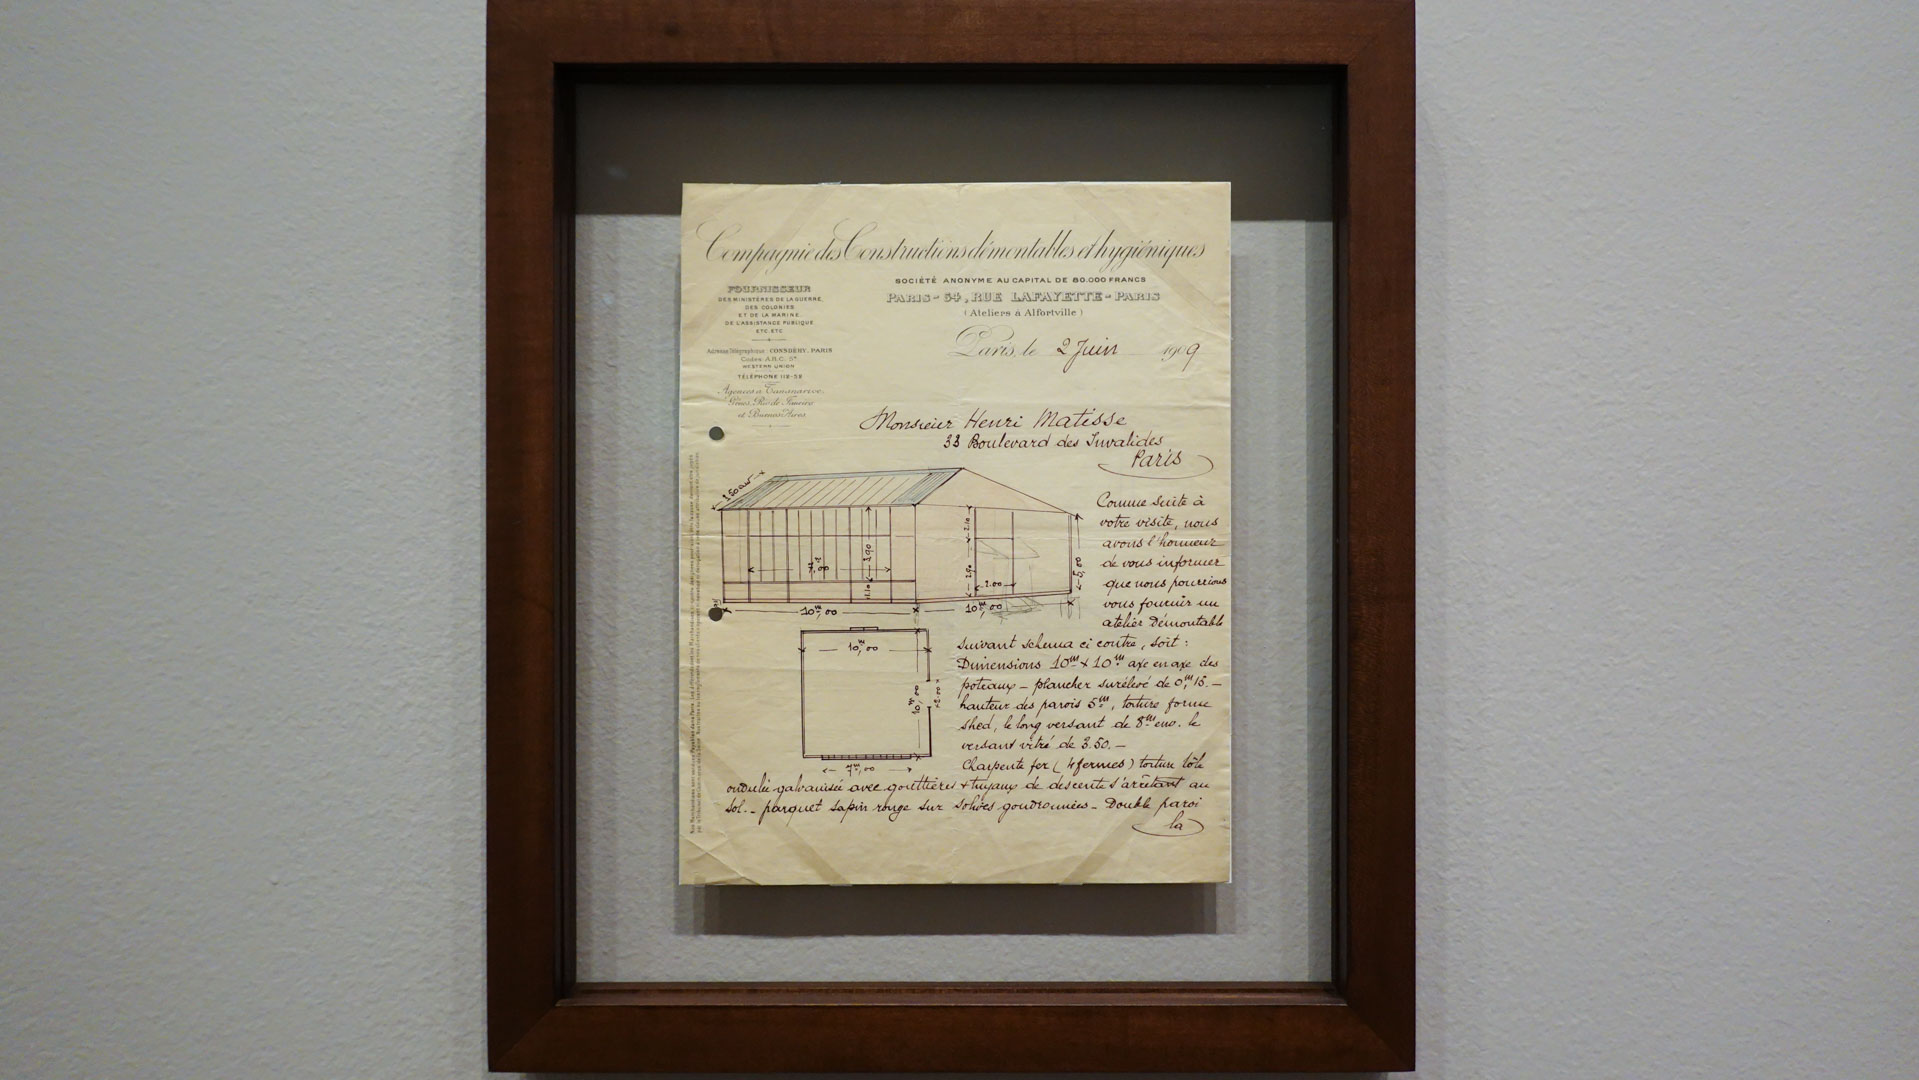 Compagnie des Constructions démontables et hygiéniques
SOCIÉTÉ ANONYME AU CAPITAL DE 80.000 FRANCS
PARIS - 54, RUE LAFAYETTE - PARIS
(Ateliers à Alfortville)
FOURNISSEUR
DES MINISTÈRES DE LA GUERRE,
DES COLONIES
ET DE LA MARINE,
DE L'ASSISTANCE PUBLIQUE
ETC. ETC.
Adresse Télégraphique: CONSDÉHY, PARIS
Codes: A.B.C. 5e
WESTERN UNION
TÉLÉPHONE 118-58
Agences à Tananarive,
Gênes, Rio de Janeiro
et Buenos Aires
Paris, le 2 Juin 1909
Monsieur Henri Matisse
33 Boulevard des Invalides
Paris
Comme suite à
votre visite, nous
avons l'honneur
de vous informer
que nous pourrions
vous fournir un
atelier Démontable
suivant schema ci contre, soit :
Dimensions 10m x 10m axe en axe des
poteaux - plancher surélevé de 0m,15. -
hauteur des parois 5m, toiture forme
shed, le long versant de 8m env. le
versant vitré de 3.50. -
Charpente fer (4 fermes) toiture tôle
ondulée galvanisée avec gouttières + tuyaux de descente s'arrêtant au
sol. - parquet sapin rouge sur solives goudronnées - Double paroi
la
3.50 env
7m,00
3.90
1.10
2.10
2.90
2.00
5,00
10m,00
10m,00
10m,00
10m,00
2.00
7m,00